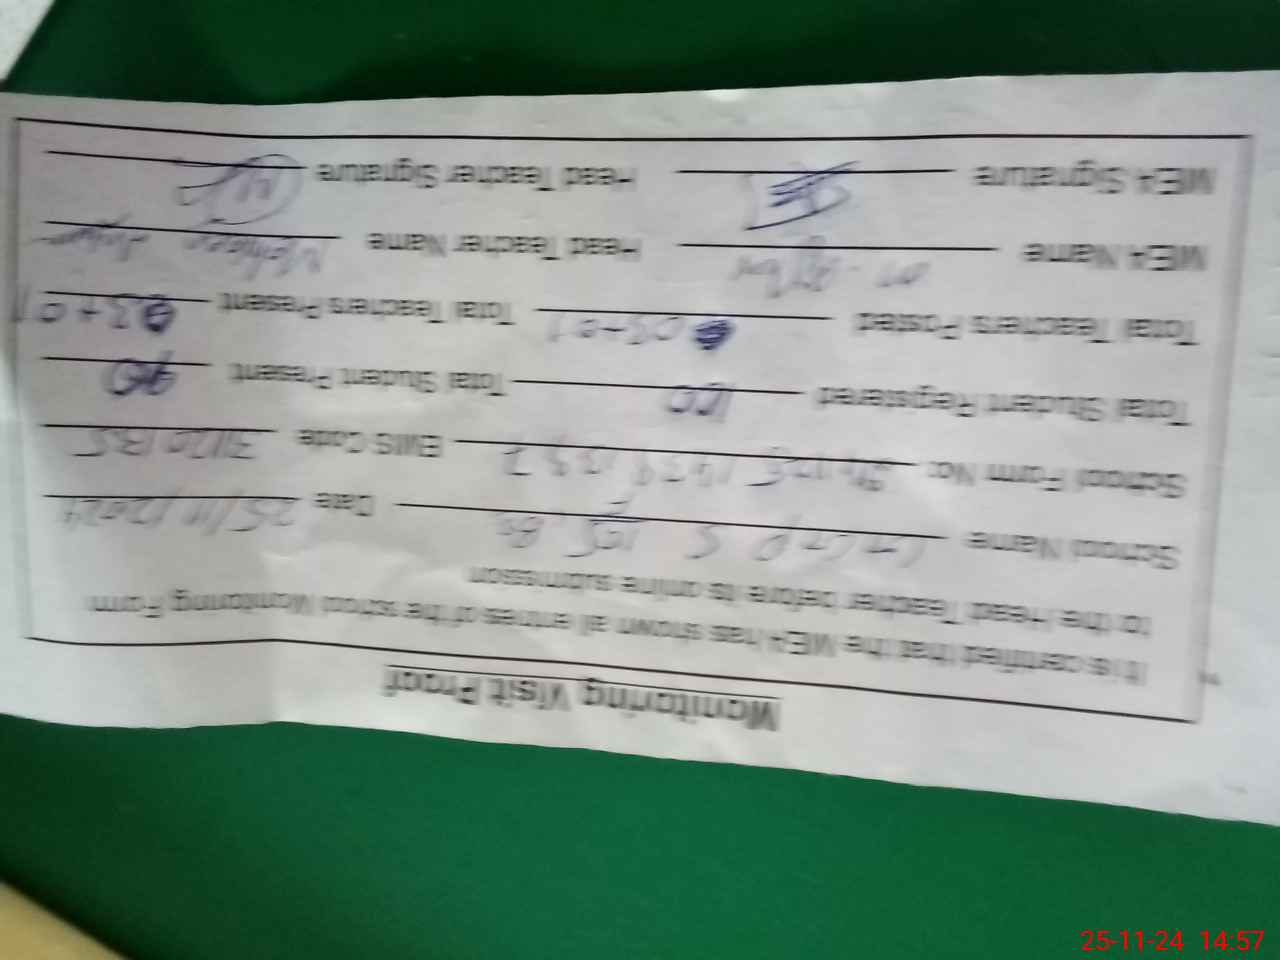 Monitoring Visit Proof
It is certified that the MEA has shown all entries of the school Monitoring Form
to the Head Teacher before its online submission
School Name GGPS 105 Date 25/11/2024
School Form No: EMIS Code
Total Student Registered 100 Total Student Present 90
Total Teachers Posted 03+01 Total Teachers Present 03+01
MEA Name Head Teacher Name
MEA Signature Head Teacher Signature
25-11-24 14:57